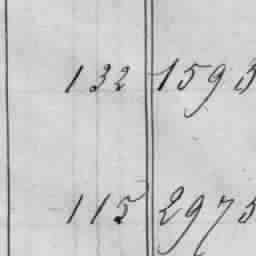 132 1593
115 2975